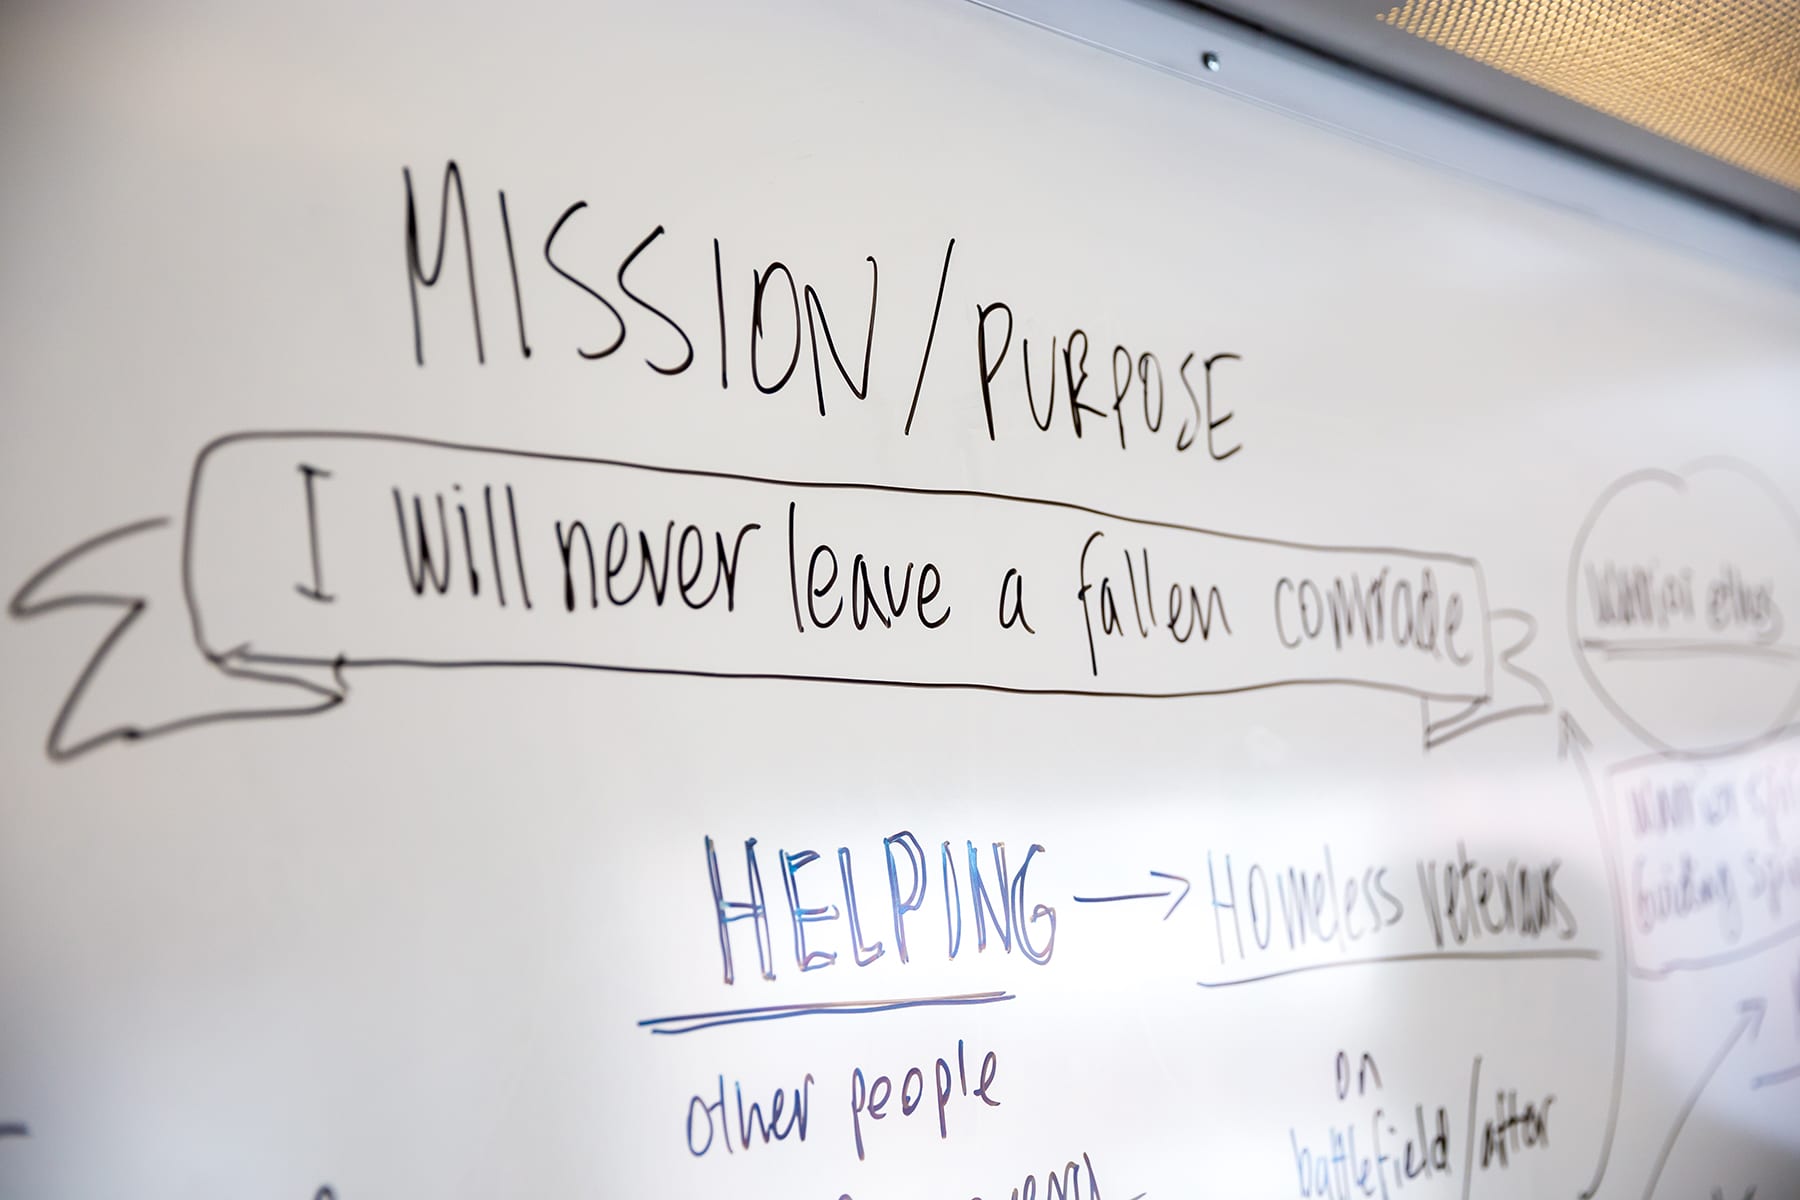 MISSION/PURPOSE
I will never leave a fallen comrade
Warrior ethos
HELPING → Homeless veterans
Warrior
Guiding
other people
on
battlefield/after